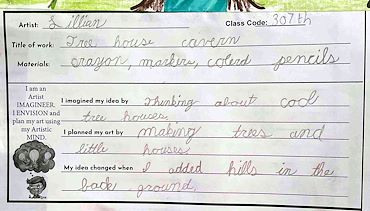 Artist: Lillian Class Code: 307th
Title of work: Tree house cavern
Materials: crayon, markers, colerd pencils
I am an
Artist
IMAGINEER.
I ENVISION and
plan my art using
my Artistic
MIND.
I imagined my idea by thinking about cool
tree houses.
I planned my art by making trees and
little houses
My idea changed when I added hills in the
back ground.